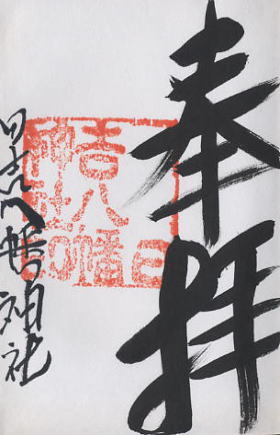 奉拝
日吉八幡
神社印
日吉八幡神社